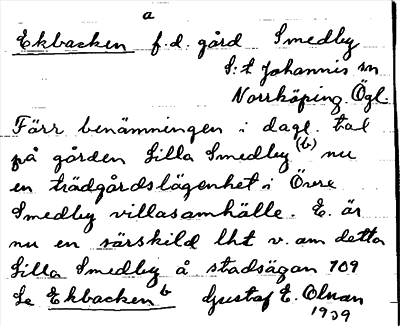 a
Ekbacken f.d. gård Smedby
S:t Johannis sn
Norrköping. Ögl.
Förr benämningen i dagl. tal
på gården Lilla Smedby (b) nu
en trädgårdslägenhet i Övre
Smedby villasamhälle. E. är
nu en särskild lht v. om detta
Lilla Smedby å stadsägan 709
Se Ekbacken b Gustaf E. Olnan
1939